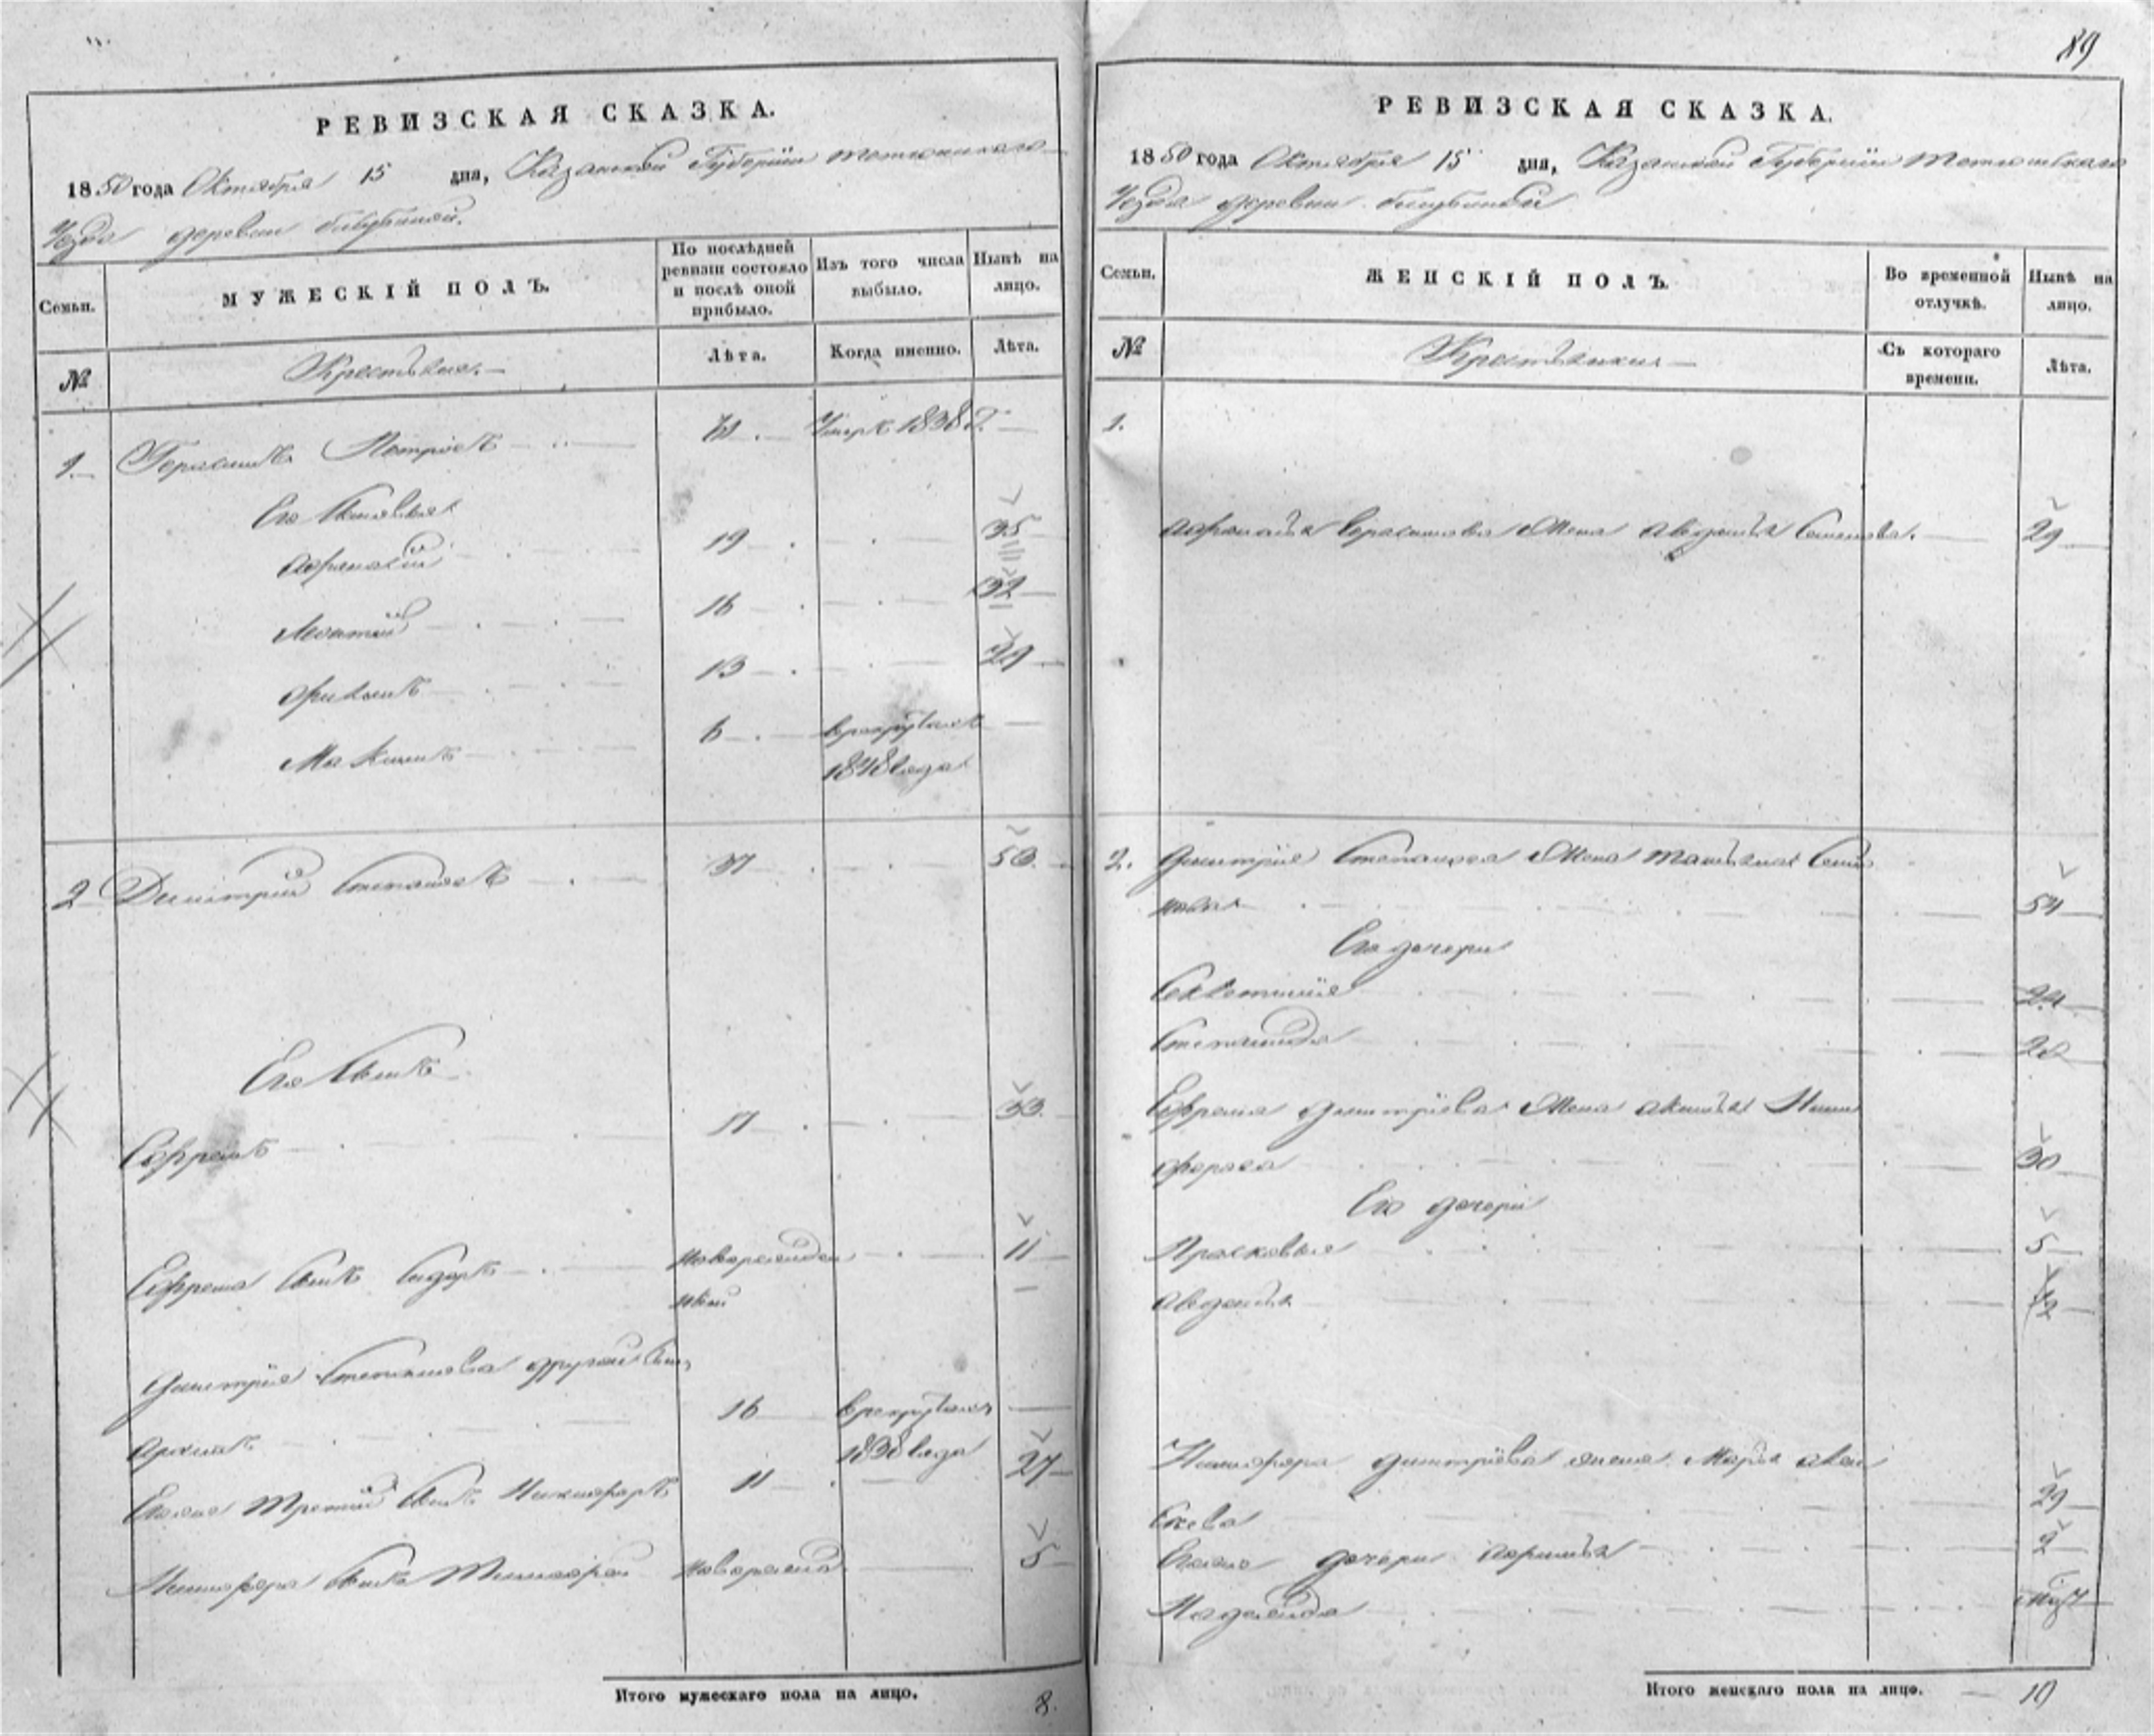 89
РЕВИЗСКАЯ СКАЗКА.
1850 года Октября 15 дня, Казанской Губернии Тетюшскаго
Уезда деревни
Семьи.
МУЖЕСКІЙ ПОЛЪ.
По послѣдней ревизіи состояло и послѣ оной прибыло.
Изъ того числа выбыло.
Нынѣ на лицо.
№
Крестьяне.
Лѣта.
Когда именно.
Лѣта.
1. Герасимъ Петровъ 71 Умеръ 1838 г.
Его Сыновья
Афанасій 19 35
Леонтій 16 32
Филипъ 13 29
Максимъ 6 в рекрутахъ
1848 года
2 Димитрій Степановъ 37 53
Его Сынъ
Ефремъ 17 33
Ефрема Сынъ Сидоръ новорожден 11
ный
Димитрія Степанова другой Сынъ
Архипъ 16 в рекрутахъ
1838 года
Его же третій Сынъ Никифоръ 11 27
Никифора Сынъ Тимофей новорожд. 5
Итого мужескаго пола на лицо. 8.
РЕВИЗСКАЯ СКАЗКА.
1850 года Октября 15 дня, Казанской Губерніи Тетюшскаго
Уезда деревни
Семьи.
ЖЕНСКІЙ ПОЛЪ.
Во временной отлучкѣ.
Нынѣ на лицо.
№
Крестьянки
Съ котораго времени.
Лѣта.
1.
Афанасья Герасимова Жена Авдотья Семенова. 29
2. Димитрія Степанова Жена Татьяна Семе
нова 54
Его дочери
24
Степанида 20
Ефрема Димитріева Жена Акулина Ники
форова 30
Его дочери
Прасковья 5
Авдотья
Никифора Димитріева жена Марья Алек
сеева 29
Его же дочери 2
Надежда
Итого женскаго пола на лицо. 10